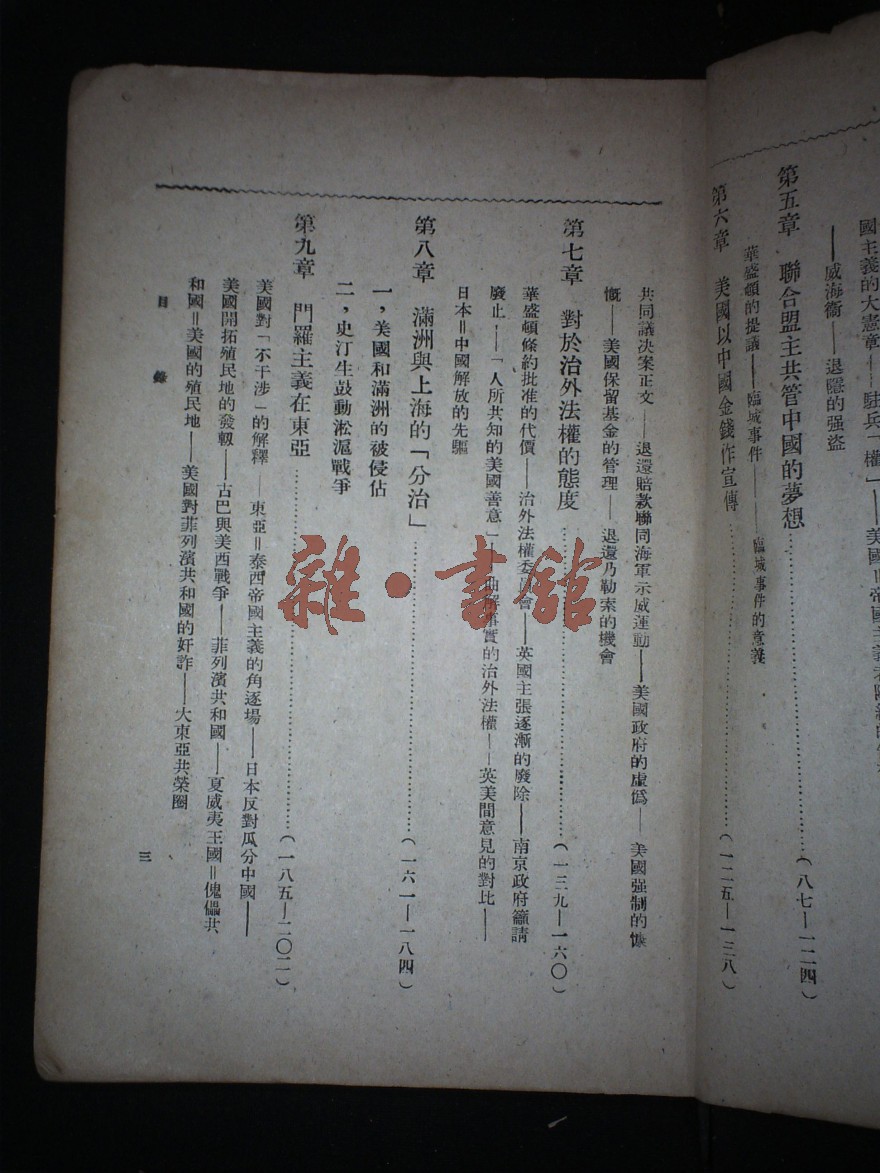 國主義的大憲章——駐兵「權」——美國
——威海衞——退隱的强盜
第五章　聯合盟主共管中國的夢想…………（八七—一二四）
華盛頓的提議——臨城事件——臨城事件的意義
第六章　美國以中國金錢作宣傳…………（一二五—一三八）
共同議決案正文——退還賠款聯同海軍示威運動——美國政府的虛僞——美國强制的慷
慨——美國保留基金的管理——退還乃勒索的機會
第七章　對於治外法權的態度…………（一三九—一六〇）
華盛頓條約批准的代價——治外法權委員會——英國主張逐漸的廢除——南京政府籲請
廢止——「人所共知的美國善意」——曲解事實的治外法權——英美間意見的對比——
日本＝中國解放的先驅
第八章　滿洲與上海的「分治」…………（一六一—一八四）
一，美國和滿洲的被侵佔
二，史汀生鼓動淞滬戰爭
第九章　門羅主義在東亞…………（一八五—二〇二）
美國對「不干涉」的解釋——東亞＝泰西帝國主義的角逐場——日本反對瓜分中國——
美國開拓殖民地的發軔——古巴與美西戰爭——菲列濱共和國——夏威夷王國＝傀儡共
和國＝美國的殖民地——美國對菲列濱共和國的奸詐——大東亞共榮圈
目錄
三
雜·書館